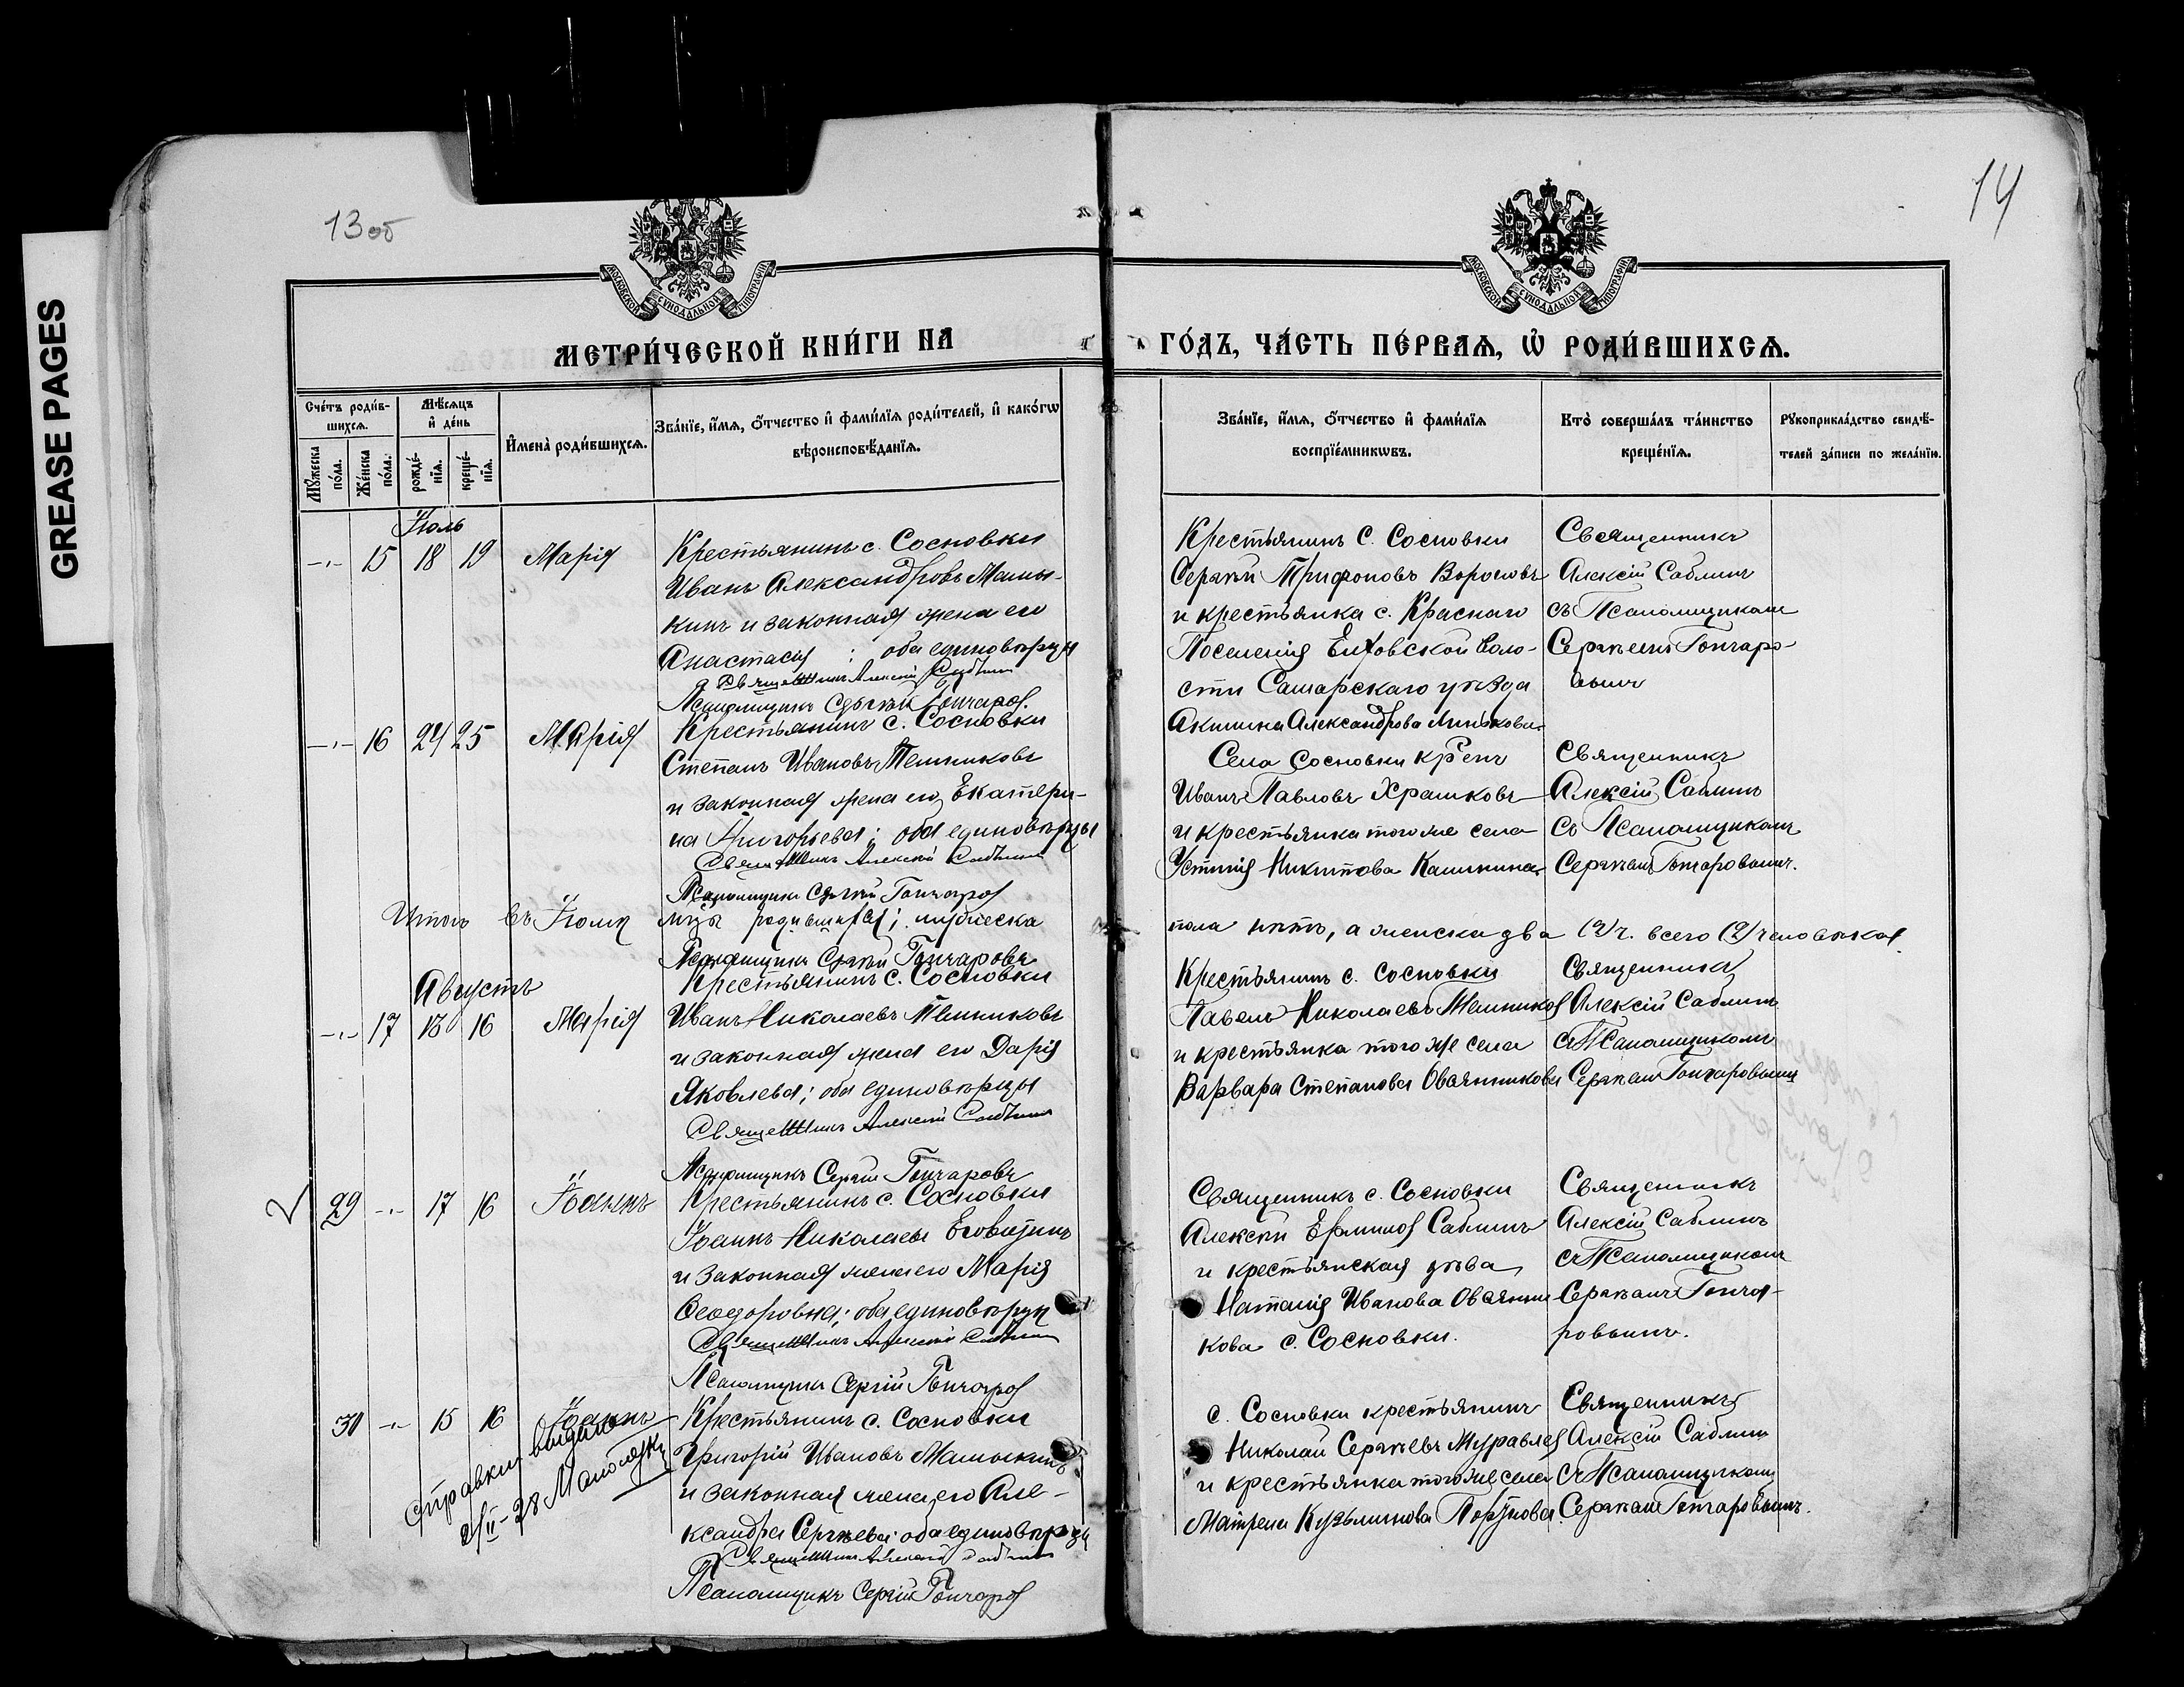 GREASE PAGES
13об
14
МОСКОВСКОЙ СѴНОДАЛЬНОЙ ТИПОГРАФІИ
МОСКОВСКОЙ СѴНОДАЛЬНОЙ ТИПОГРАФІИ
МЕТРИ́ЧЕСКОЙ КНИ́ГИ НА
ГО́ДЪ, ЧА́СТЬ ПЕ́РВАѦ, Ѡ҆ РОДИ́ВШИХСѦ.
Сче́тъ роди́в-
шихсѧ.
Мѣ́сѧцъ
и҆ де́нь
Мꙋ́жеска
по́ла.
Же́нска
по́ла.
рожде́-
нїѧ.
креще́-
нїѧ.
И҆мена̀ роди́вшихсѧ.
Зва́нїе, и҆́мѧ, ѻ҆́тчество и҆ фами́лїѧ роди́телей, и҆ како́гѡ
вѣроисповѣ́данїѧ.
Зва́нїе, и҆́мѧ, ѻ҆́тчество и҆ фами́лїѧ
воспрїе́мникѡвъ.
Кто̀ соверша́лъ та́инство
креще́нїѧ.
Рꙋкоприкла́дство свидѣ́-
телей за́писи по жела́нїю.
Іюль
-"- 15 18 19 Марія
Крестьянинъ с. Сосновки
Иванъ Александровъ Мамы-
кинъ и законная жена его
Анастасія : оба единовѣрцы
Священникъ Алексій Саблинъ
Псаломщикъ Сергѣй Гончаров.
Крестьянинъ с. Сосновки
Сергѣй Трифоновъ
и крестьянка с. Краснаго
Поселенія Елховской воло-
сти Самарскаго уѣзда
Акилина Александрова
Священникъ
Алексій Саблинъ
съ Псаломщикомъ
Сергѣемъ Гончаро-
вымъ
-"- 16 24 25 Марія
Крестьянинъ с. Сосновки
Степанъ Ивановъ Тюшниковъ
и законная жена его Екатери-
на Григорьева; оба единовѣрцы
Священникъ Алексій Саблинъ
Псаломщикъ Сергѣй Гончаров
Села Сосновки кр-нъ
Иванъ Павловъ Храмковъ
и крестьянка того же села
Устинія Никитова Калинина
Священникъ
Алексій Саблинъ
съ Псаломщикомъ
Сергѣемъ Гончаровымъ.
Итого въ Іюлѣ мцѣ родившихся; мужеска пола нѣтъ, а женска два (2) ч. всего (2) человѣка
Псаломщикъ Сергѣй Гончаровъ
Августъ
-"- 17 13 16 Марія
Крестьянинъ с. Сосновки
Иванъ Николаевъ Тюшниковъ
и законная жена его Дарія
Яковлева; оба единовѣрцы
Священникъ Алексій Саблинъ
Псаломщикъ Сергій Гончаровъ
Крестьянинъ с. Сосновки
Павелъ Николаевъ
и крестьянка того же села
Варвара Степанова Овсянникова
Священникъ
Алексій Саблинъ
съ Псаломщикомъ
Сергѣемъ Гончаровымъ
29 -"- 17 16 Іоаннъ
Крестьянинъ с. Сосновки
Іоаннъ Николаевъ
и законная жена его Марія
Ѳеодоровна; оба единовѣрцы
Священникъ Алексій Саблинъ
Псаломщикъ Сергій Гончаров
Священникъ с. Сосновки
Алексій Ермилов Саблинъ
и крестьянская дѣва
Наталія Иванова Овсянни-
кова с. Сосновки.
Священникъ
Алексій Саблинъ
съ Псаломщикомъ
Сергѣемъ Гонча-
ровымъ.
30 -"- 15 16 Іоаннъ
справки выданы
Крестьянинъ с. Сосновки
Григорій Ивановъ Мамыкинъ
и законная жена его Але-
ксандра Сергѣева; оба единовѣрцы
Священникъ Алексій Саблинъ
Псаломщикъ Сергій Гончаров
с. Сосновки крестьянинъ
Николай Сергѣевъ Муравлев
и крестьянка того же села
Матрена Кузьминова
Священникъ
Алексій Саблинъ
съ Псаломщикомъ
Сергѣемъ Гончаровымъ.